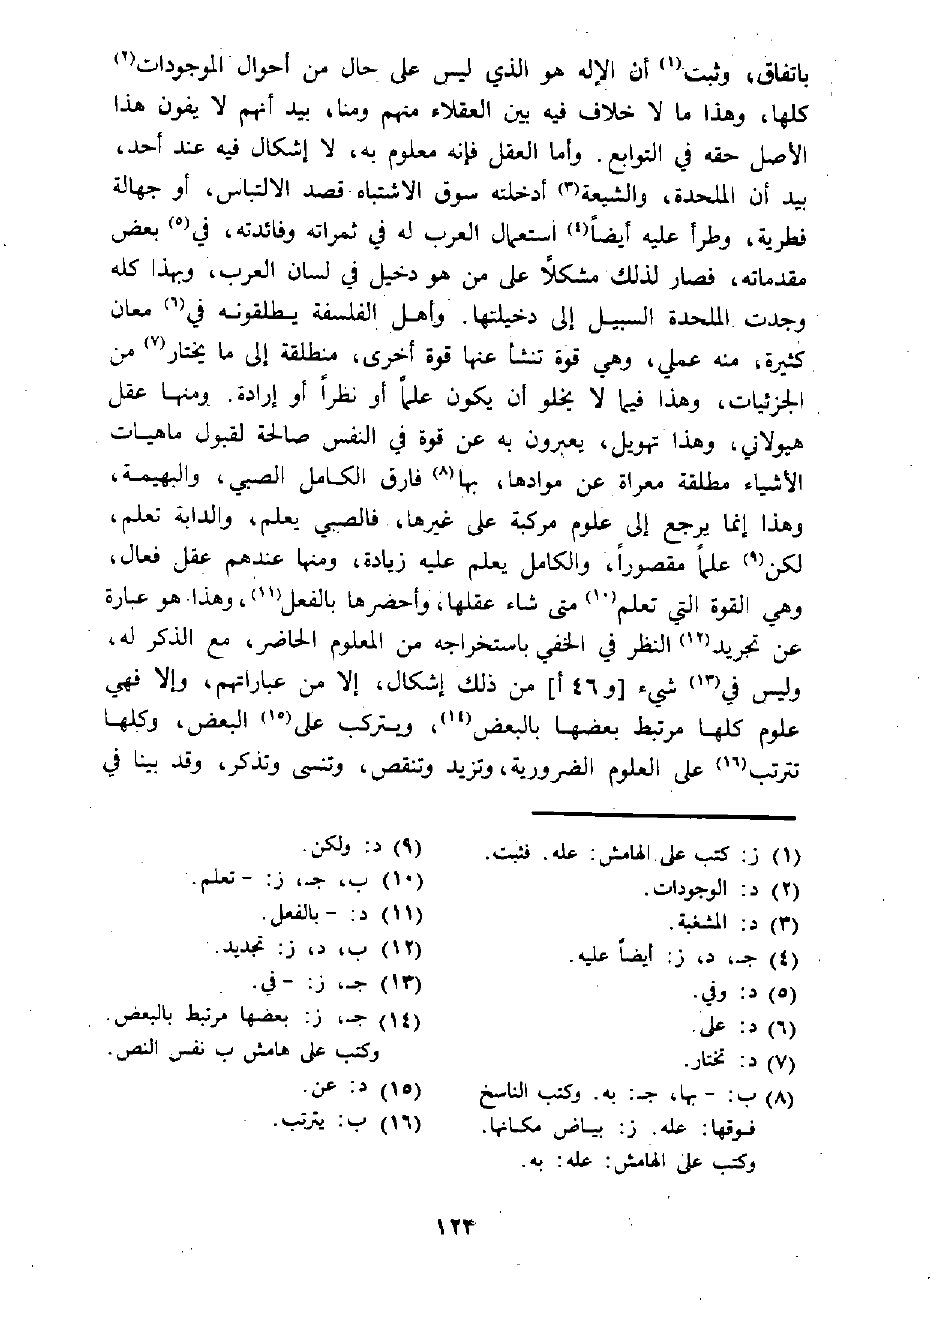 باتفاق، وثبت(١) أن الإله هو الذي ليس على حال من أحوال الموجودات(٢)
كلها، وهذا ما لا خلاف فيه بين العقلاء منهم ومنا، بيد أنهم لا يفون هذا
الأصل حقه في التوابع. وأما العقل فإنه معلوم به، لا إشكال فيه عند أحد،
بيد أن الملحدة، والشيعة(٣) أدخلته سوق الاشتباه قصد الالتباس، أو جهالة
فطرية، وطرأ عليه أيضاً(٤) استعمال العرب له في ثمراته وفائدته، في(٥) بعض
مقدماته، فصار لذلك مشكلاً على من هو دخيل في لسان العرب، وبهذا كله
وجدت الملحدة السبيل إلى دخيلتها. وأهل الفلسفة يطلقونه في(٦) معان
كثيرة، منه عملي، وهي قوة تنشأ عنها قوة أخرى، منطلقة إلى ما يختار(٧) من
الجزئيات، وهذا فيما لا يخلو أن يكون علماً أو نظراً أو إرادة. ومنها عقل
هيولاني، وهذا تهويل، يعبرون به عن قوة في النفس صالحة لقبول ماهيات
الأشياء مطلقة معراة عن موادها، بها(٨) فارق الكامل الصبي، والبهيمة،
وهذا إنما يرجع إلى علوم مركبة على غيرها، فالصبي يعلم، والدابة تعلم،
لكن(٩) علماً مقصوراً، والكامل يعلم عليه زيادة، ومنها عندهم عقل فعال،
وهي القوة التي تعلم(١٠) متى شاء عقلها، وأحضرها بالفعل(١١)، وهذا هو عبارة
عن تجريد(١٢) النظر في الخفي باستخراجه من المعلوم الحاضر، مع الذكر له،
وليس في(١٣) شيء [و ٤٦ أ] من ذلك إشكال، إلا من عباراتهم، وإلا فهي
علوم كلها مرتبط بعضها بالبعض(١٤)، ويتركب على(١٥) البعض، وكلها
تترتب(١٦) على العلوم الضرورية، وتزيد وتنقص، وتنسى وتذكر، وقد بينا في
(١) ز: كتب على الهامش: عله. فثبت.
(٢) د: الوجودات.
(٣) د: المشغبة.
(٤) جـ، د، ز: أيضاً عليه.
(٥) د: وفي.
(٦) د: على.
(٧) د: تختار.
(٨) ب: - بها، جـ: به. وكتب الناسخ
فوقها: عله. ز: بياض مكانها.
وكتب على الهامش: عله: به.
(٩) د: ولكن.
(١٠) ب، جـ، ز: - تعلم.
(١١) د: - بالفعل.
(١٢) ب، د، ز: تجديد.
(١٣) جـ، ز: - في.
(١٤) جـ، ز: بعضها مرتبط بالبعض.
وكتب على هامش ب نفس النص.
(١٥) د: عن.
(١٦) ب: يترتب.
١٢٣